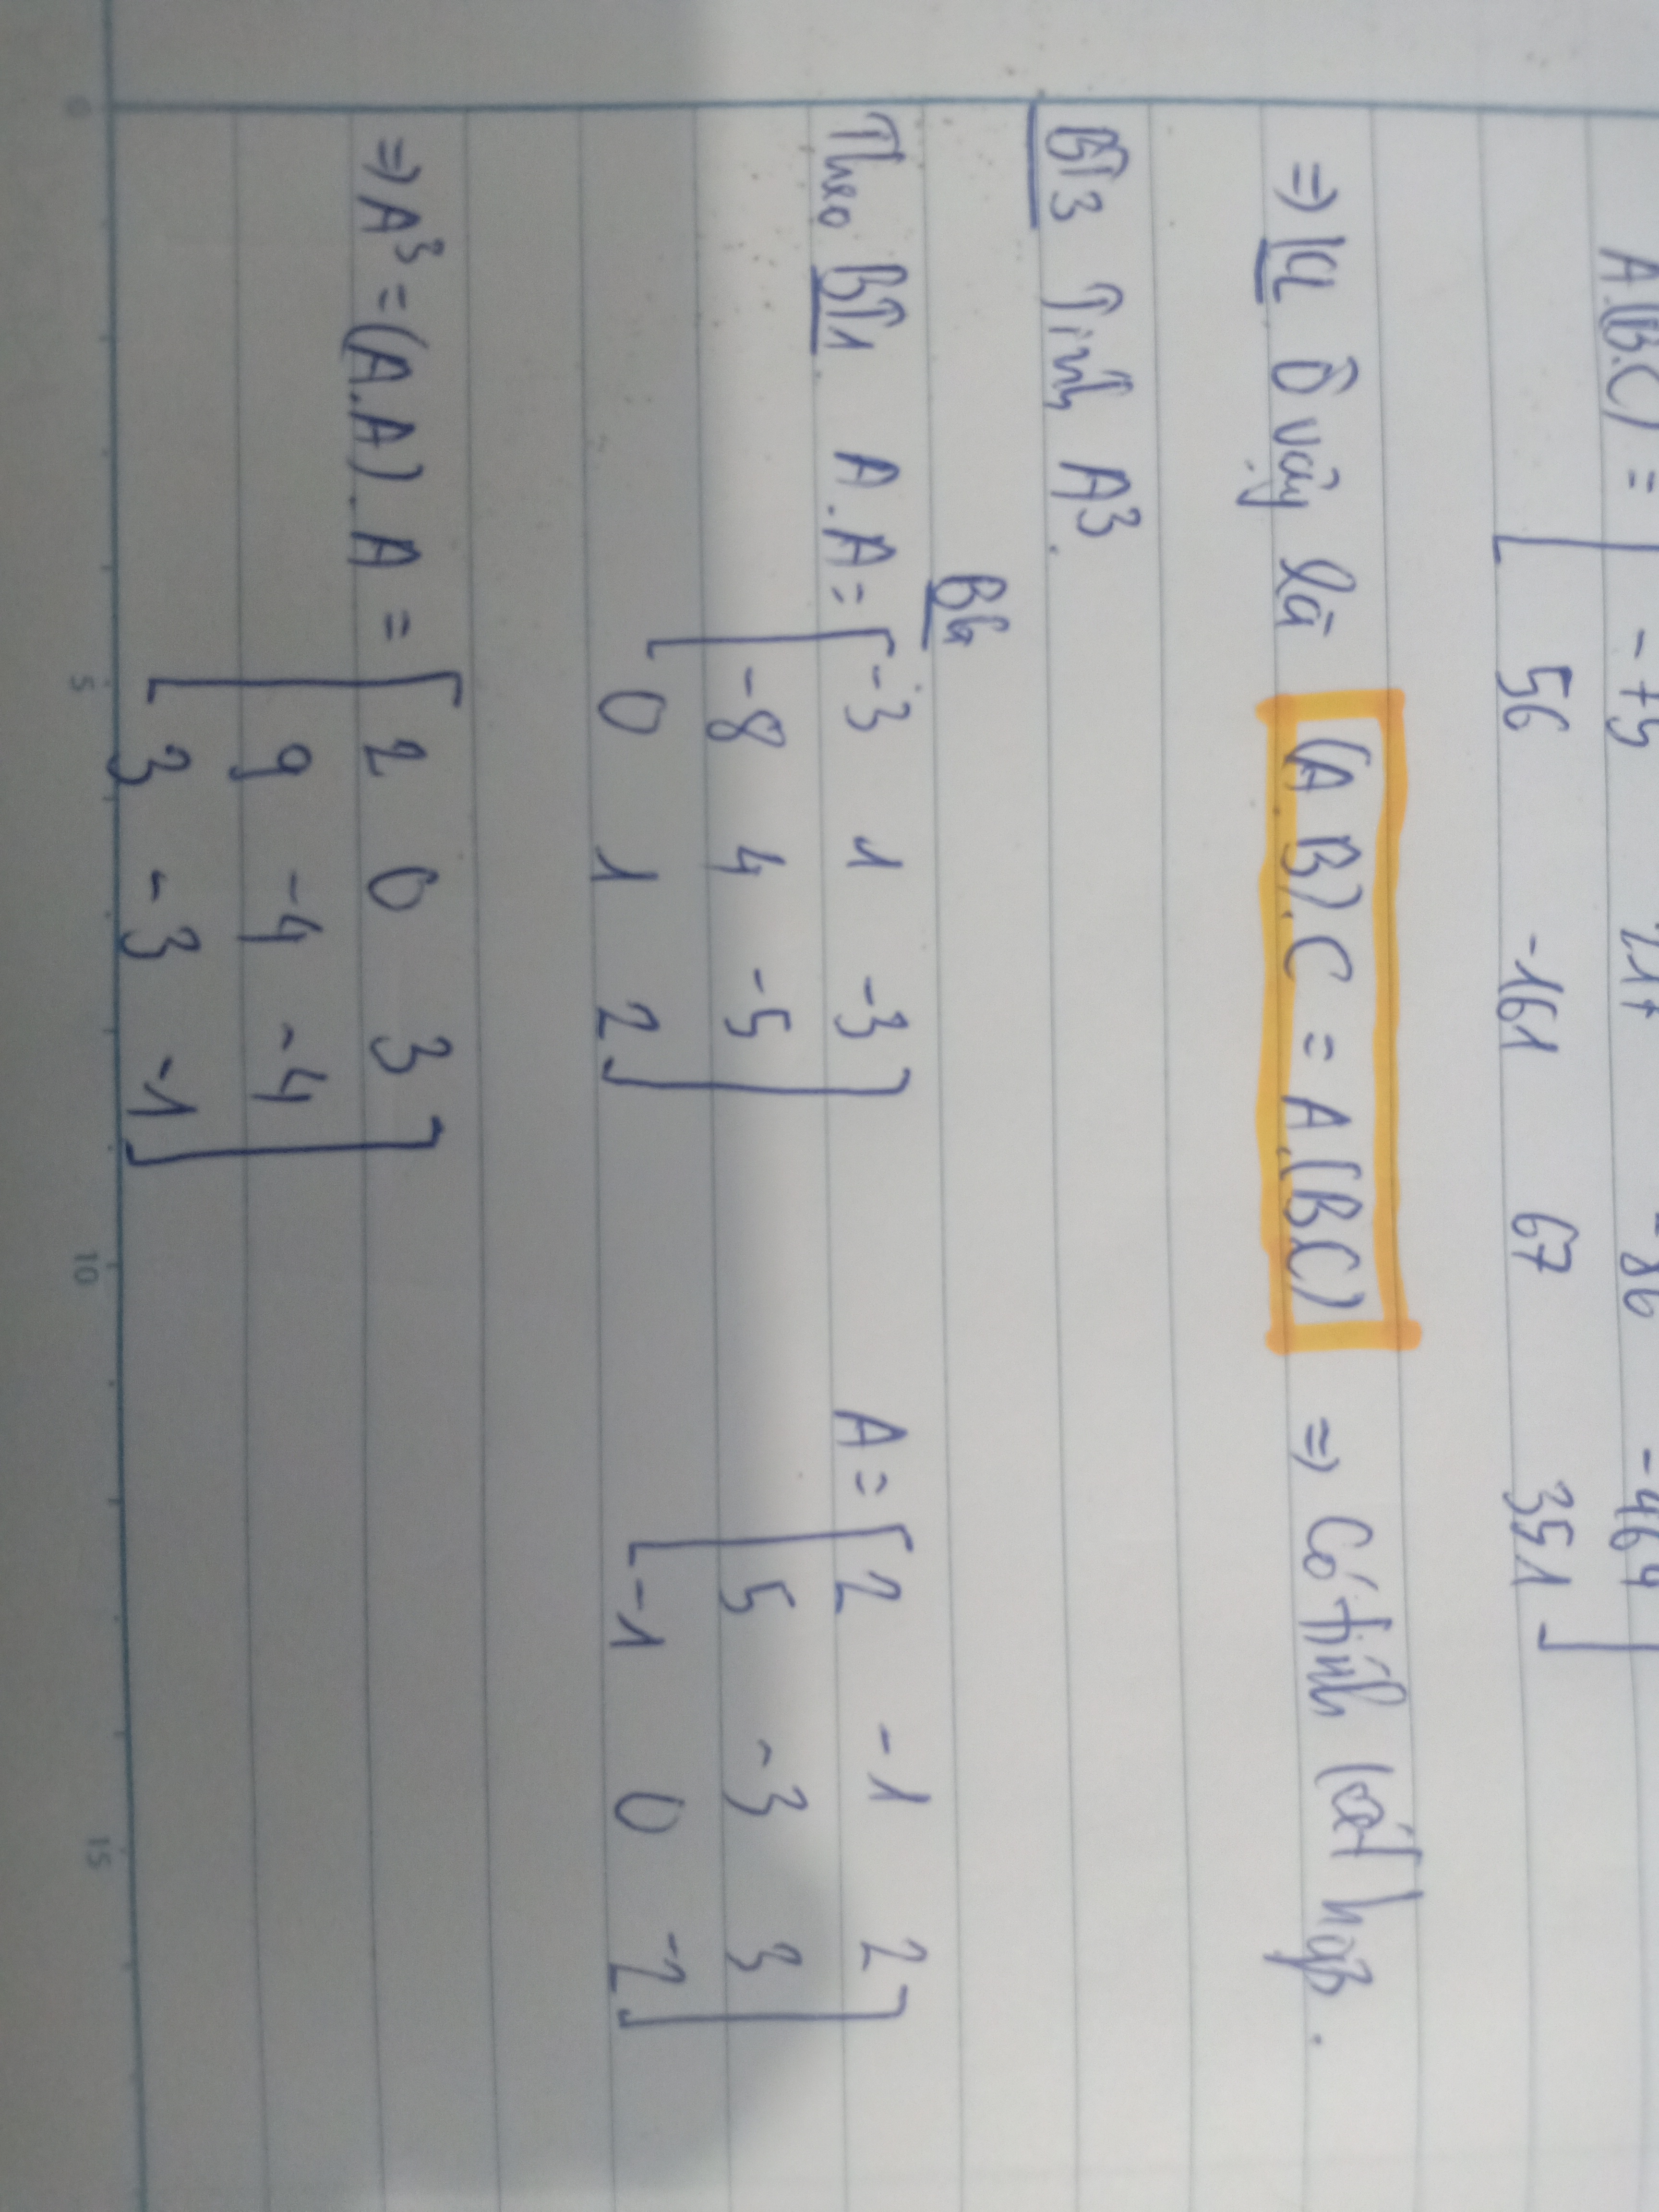 A.(B.C) = [ -75 217 -86 -464
56 -161 67 351 ]
⇒ KL Ồ vậy là (A.B).C = A.(B.C) ⇒ Có tính kết hợp.
BT3 Tính A³.
BG
Theo BT1. A.A = [ -3 1 -3 A = [ 2 -1 2
-8 4 -5 5 -3 3
0 1 2 ] -1 0 -2 ]
⇒ A³ = (A.A).A = [ 2 0 3
9 -4 -4
3 -3 -1 ]
5 10 15